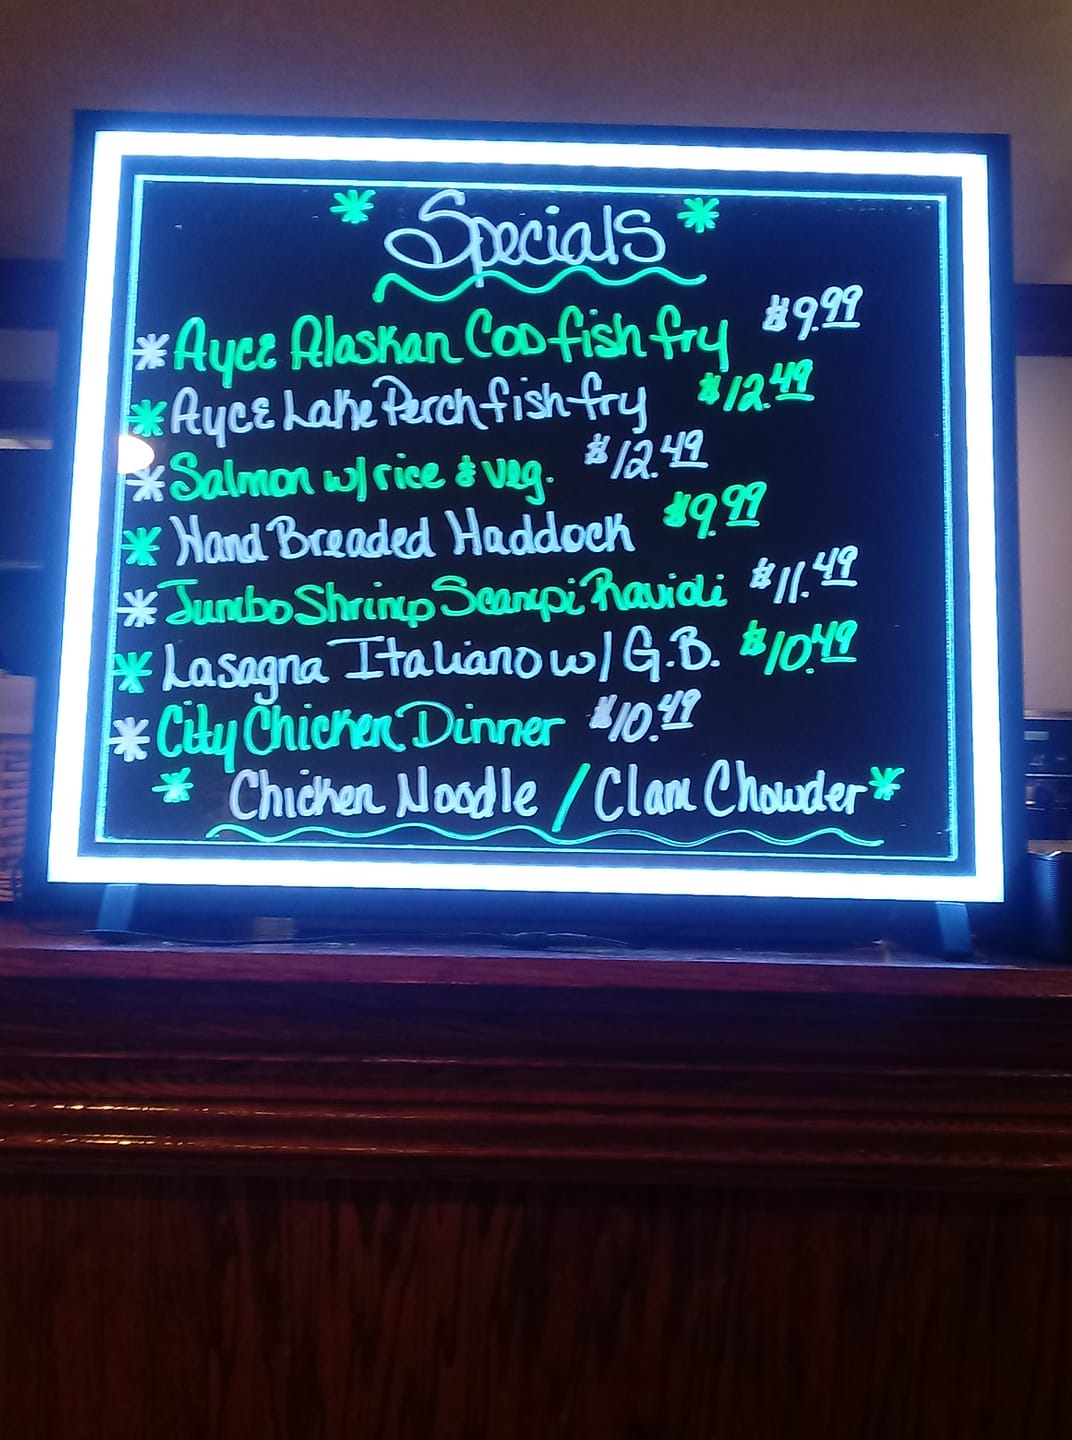 * Specials *
* Ayce Alaskan Cod fish fry $9.99
* Ayce Lake Perch fish fry $12.49
* Salmon w/ rice & veg. $12.49
* Hand Breaded Haddock $9.99
* Jumbo Shrimp Scampi Ravioli $11.49
* Lasagna Italiano w/ G.B. $10.49
* City Chicken Dinner $10.49
* Chicken Noodle / Clam Chowder *